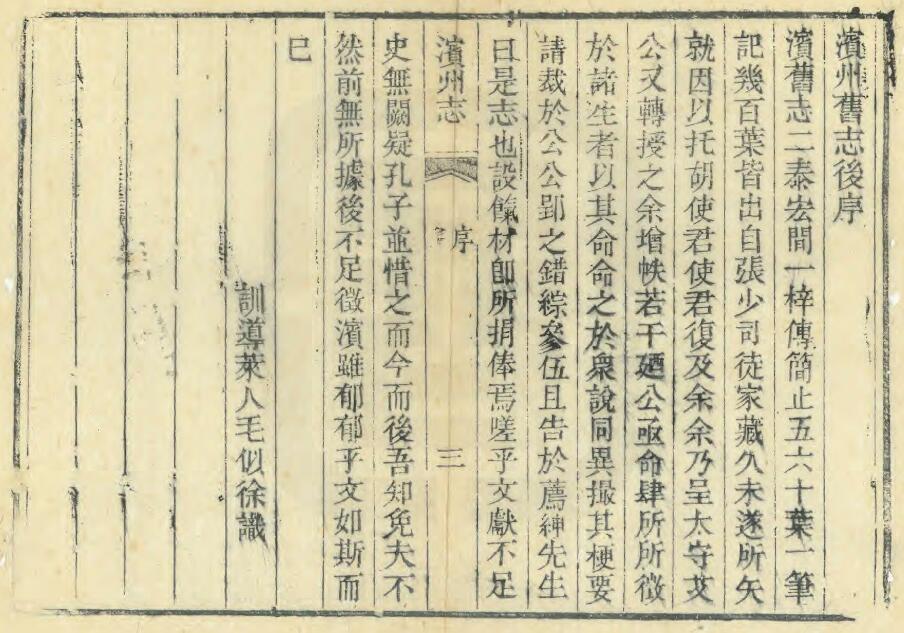 濱州舊志後序
濱舊志二泰宏間一梓傳簡止五六十葉一筆
記幾百葉皆出自張少司徒家藏久未遂所矢
就因以托胡使君使君復及余余乃呈太守艾
公又轉授之余增帙若干廼公亟命肆所所徵
於諸生者以其命命之於衆說同異撮其梗要
請裁於公公郢之錯綜參伍且告於薦紳先生
曰是志也設餼材卽所捐俸焉嗟乎文獻不足
濱州志 序 三
史無闕疑孔子並惜之而今而後吾知免夫不
然前無所據後不足徵濱雖郁郁乎文如斯而
已
訓導萊人毛似徐識